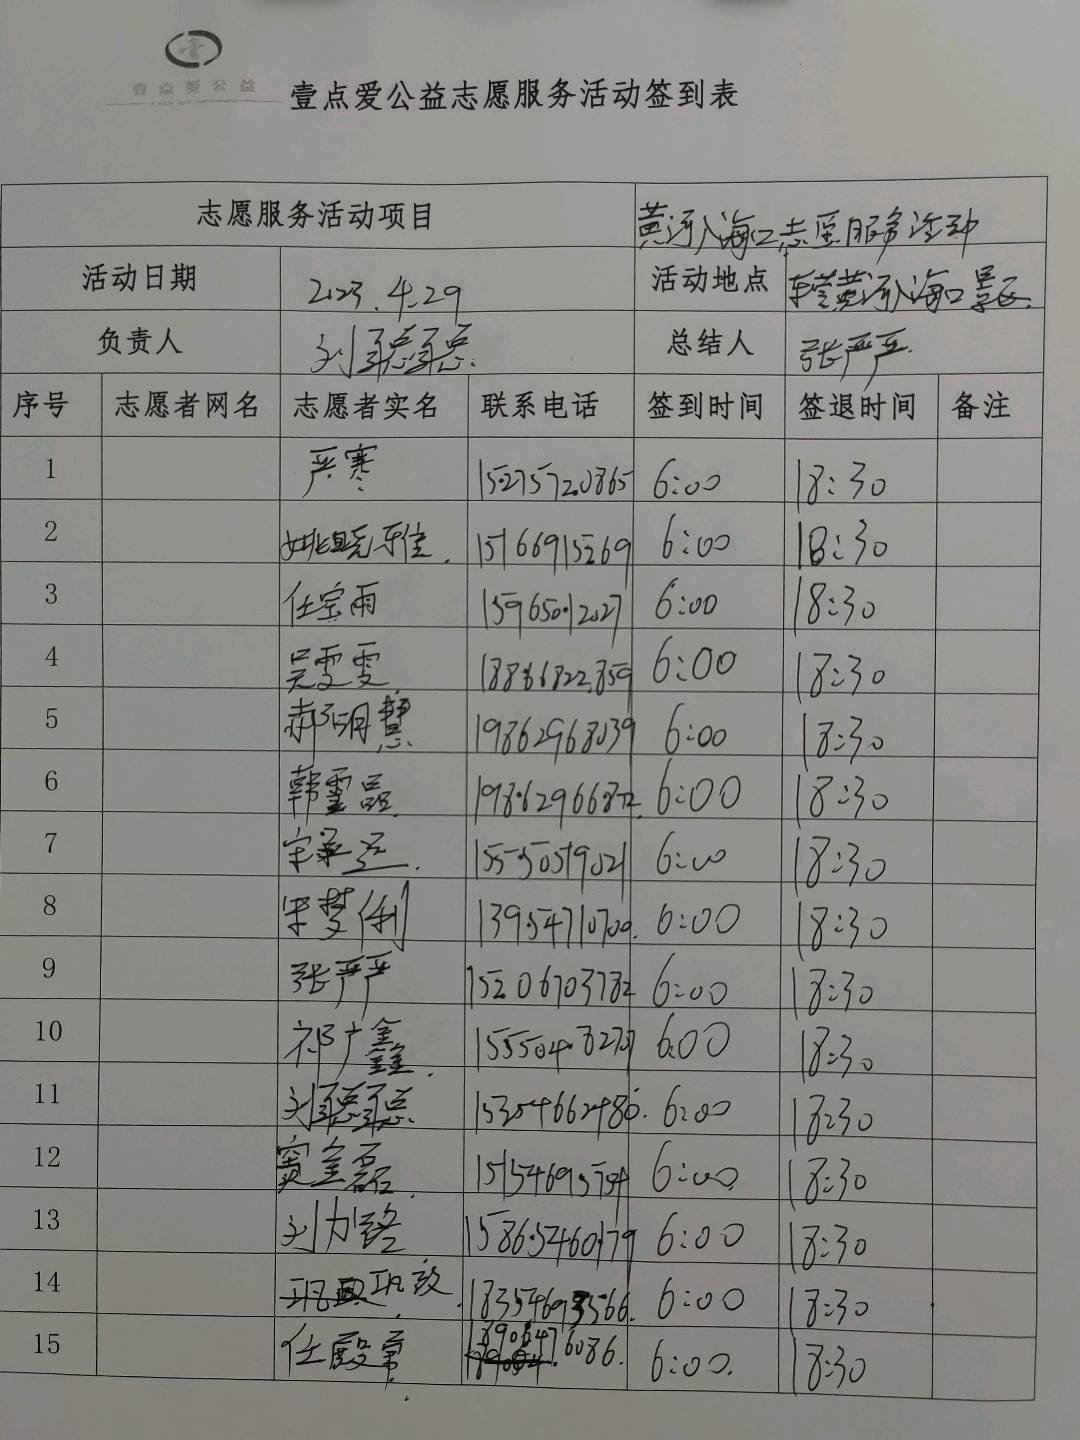 壹点爱公益
壹点爱公益志愿服务活动签到表
志愿服务活动项目 黄河入海口志愿服务活动
活动日期 2023.4.29 活动地点 东营黄河入海口景区
负责人 刘聪聪 总结人 张严严
序号 志愿者网名 志愿者实名 联系电话 签到时间 签退时间 备注
1 严寒 15275720865 6:00 18:30
2 15166915269 6:00 18:30
3 任宝雨 15965012027 6:00 18:30
4 吴雯雯 18866822859 6:00 18:30
5 郝明慧 19862968039 6:00 18:30
6 韩 19862966872 6:00 18:30
7 15550519021 6:00 18:30
8 13954710700 6:00 18:30
9 张严严 15206703782 6:00 18:30
10 祁广鑫 6:00 18:30
11 刘聪聪 15254662486 6:00 18:30
12 窦宝磊 15154695754 6:00 18:30
13 刘力路 15865460179 6:00 18:30
14 巩 18354693566 6:00 18:30
15 任殿军 18906476086 6:00 18:30